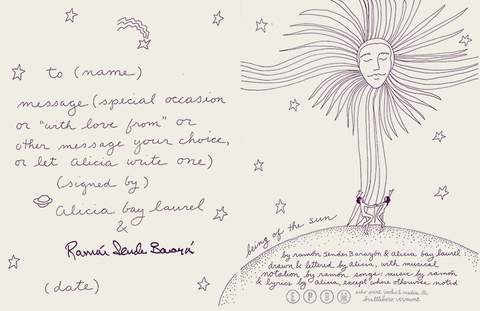 to (name)
message (special occasion
or "with love from" or
other message your choice,
or let Alicia write one)
(signed by)
Alicia bay laurel
&
Ramón Sender Barayón
(date)
being of the sun
by ramón sender barayón & alicia bay laurel
drawn & lettered by alicia, with musical
notation by ramón. songs: music by ramón
& lyrics by alicia, except where otherwise noted
E P B M echo point books & media, llc
brattleboro, vermont